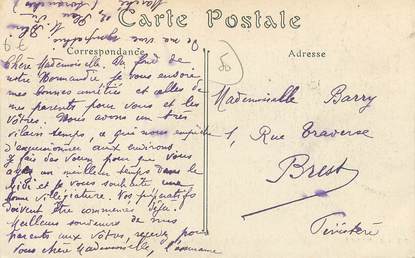 Carte Postale
Correspondance
Adresse
Chère Mademoiselle. Du fond de
notre Normandie je vous envoie
mes bonnes amitiés et celles de
mes parents pour vous et les
vôtres. Nous avons un très
vilain temps, ce qui nous empêche
d'excursionner aux environs.
Je fais des vœux pour que vous
ayez un meilleur temps dans le
Midi et je vous souhaite une
bonne villégiature. Vos préparatifs
doivent être commencés déjà.
Meilleurs souvenirs de mes
parents aux vôtres, recevez pour
vous chère Mademoiselle, l'assurance
Mademoiselle Barry
1, Rue Traverse
Brest
Finistère